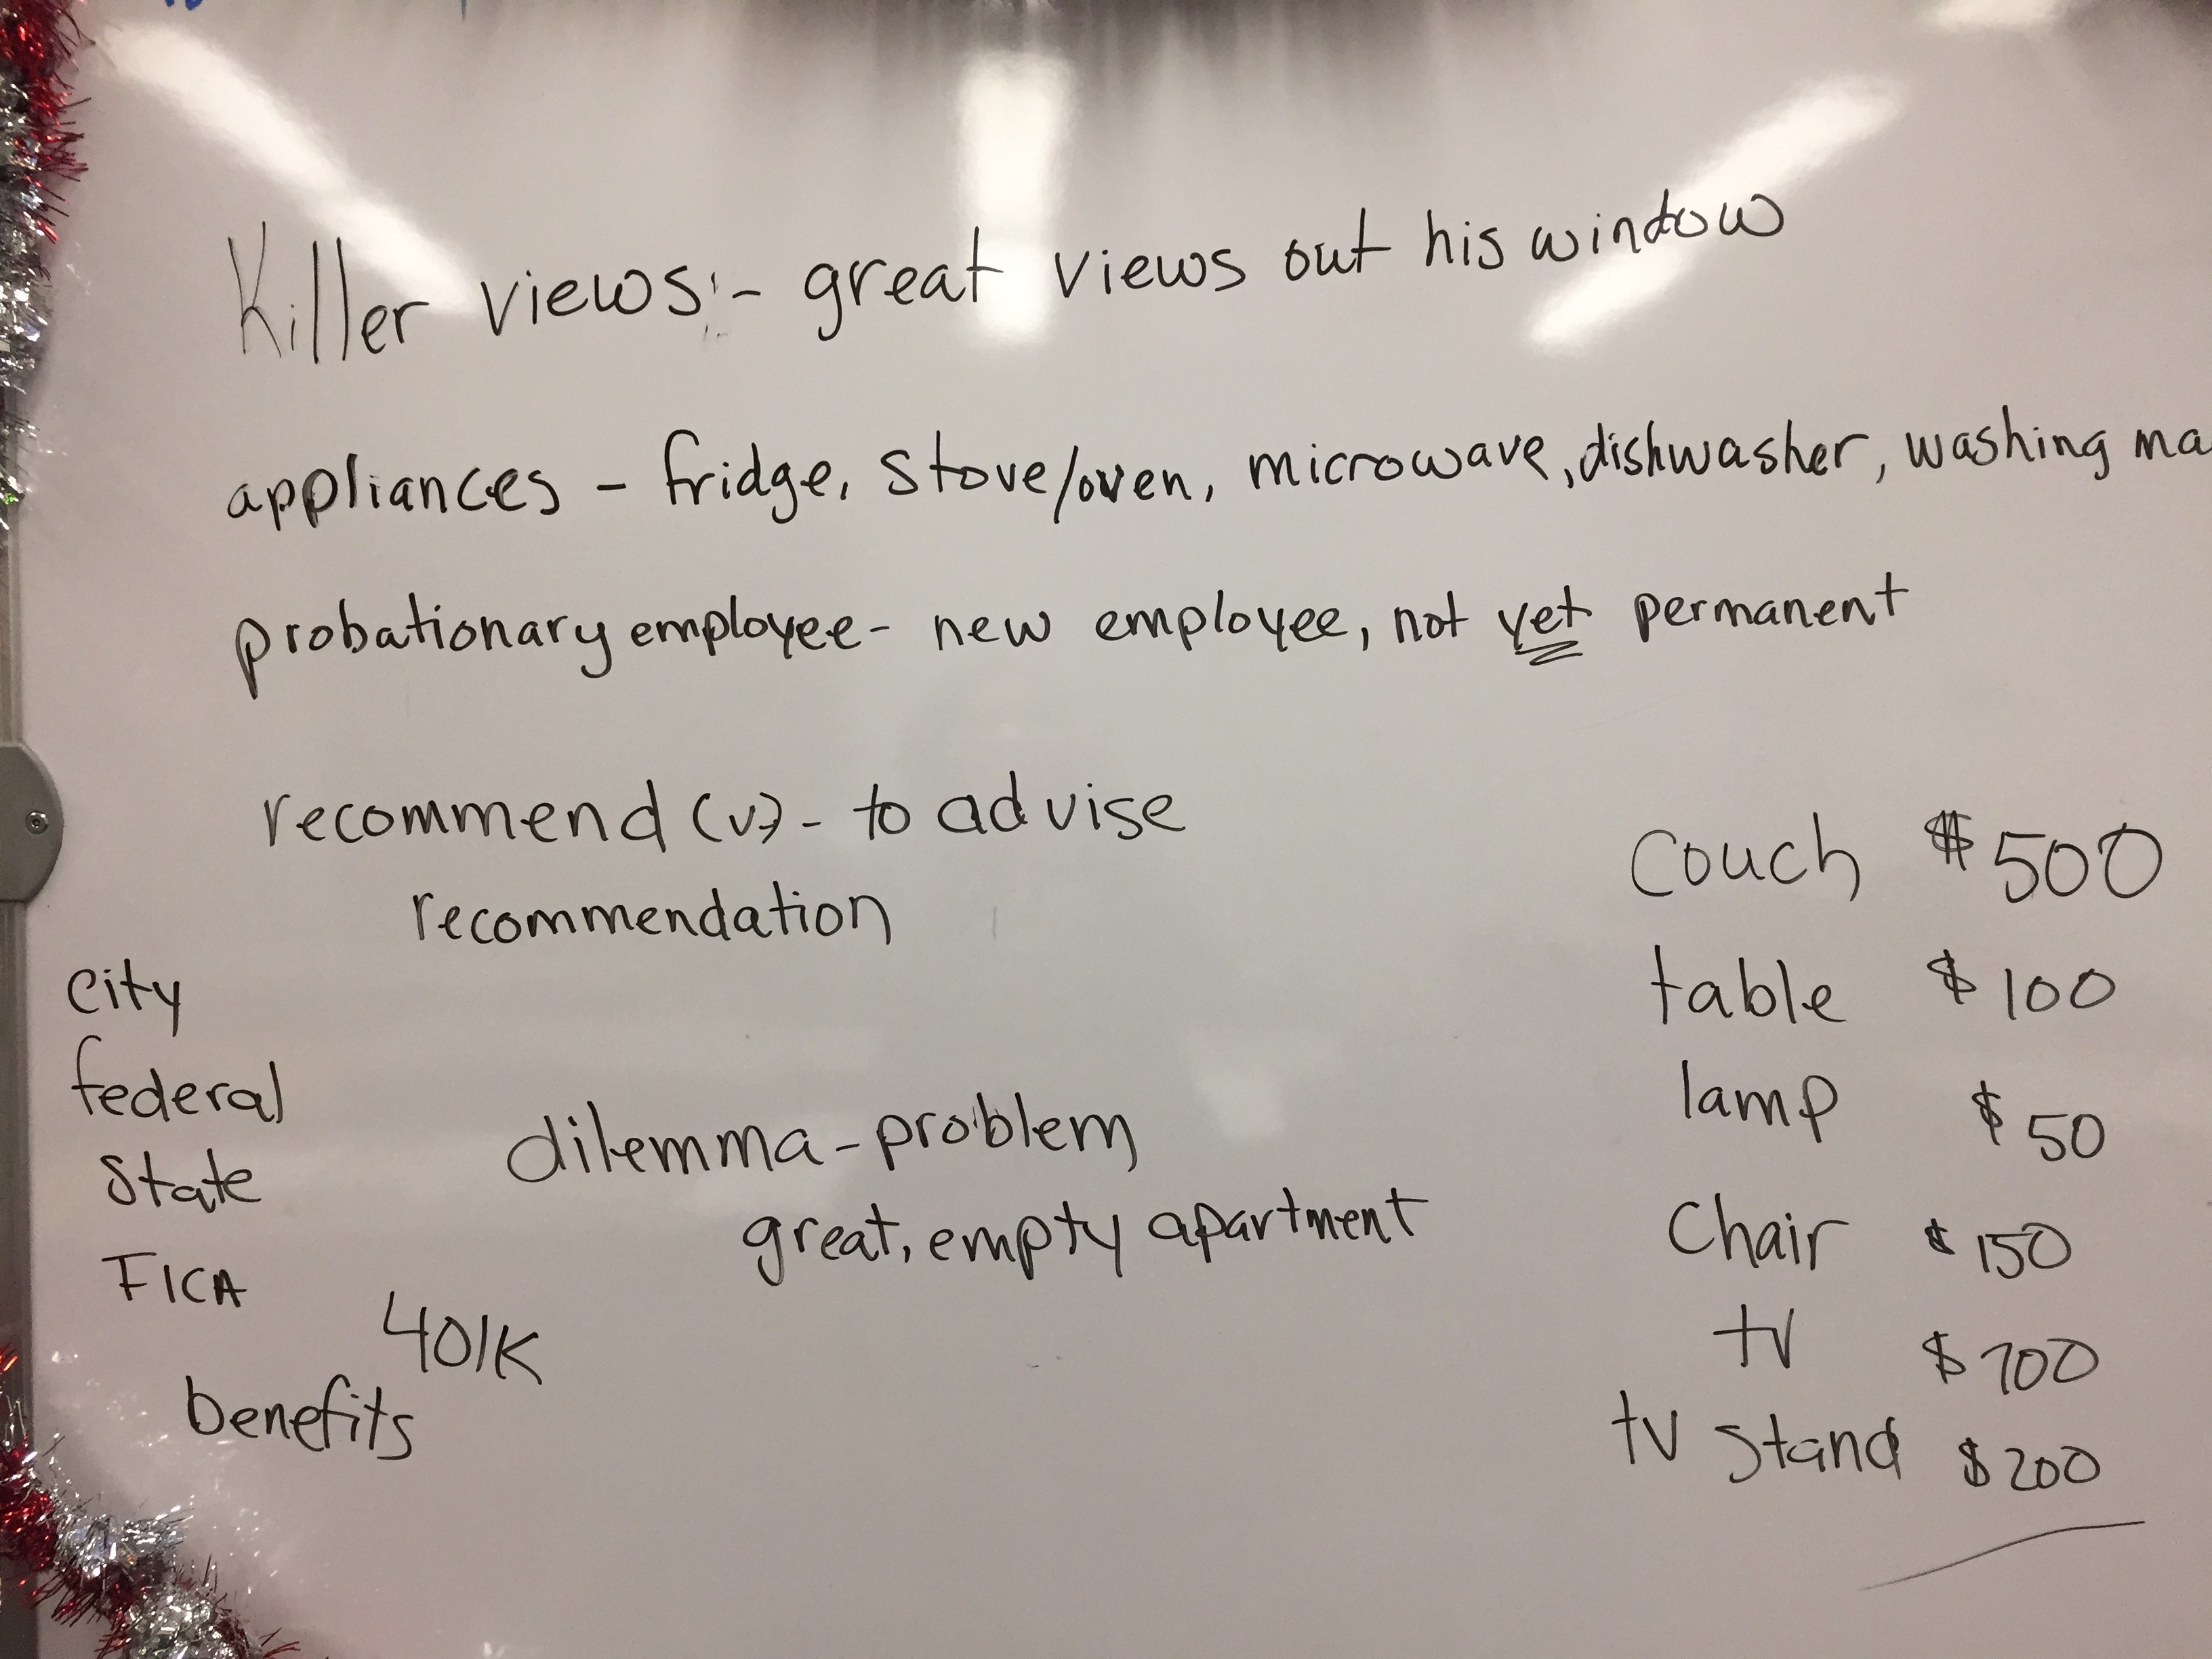 Killer views:- great views out his window
appliances - fridge, stove/oven, microwave, dishwasher, washing ma
probationary employee- new employee, not yet permanent
recommend (v)- to advise
recommendation
city
federal
state
FICA
401K
benefits
dilemma-problem
great, empty apartment
Couch $500
table $100
lamp $50
Chair $150
tv $700
tv stand $200